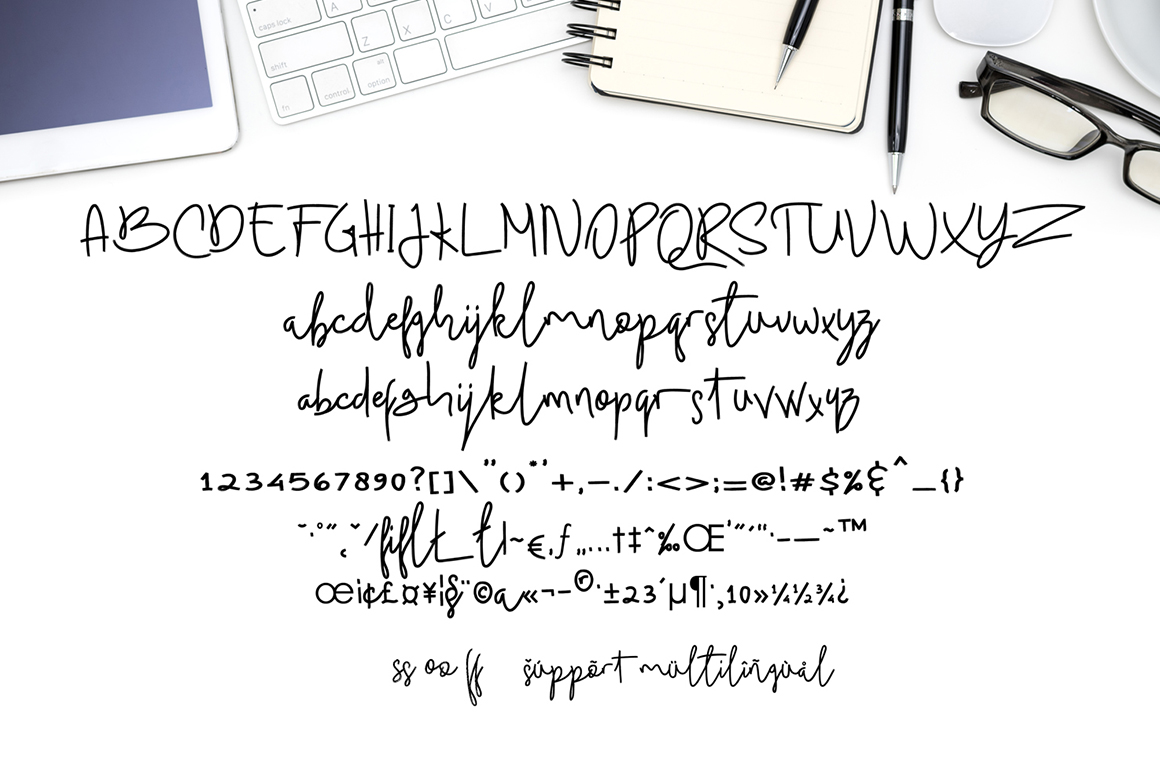 caps lock A
Z X C V
shift
fn control option alt
ABCDEFGHIJKLMNOPQRSTUVWXYZ
abcdefghijklmnopqrstuvwxyz
abcdefghijklmnopqrstuvwxyz
1234567890?[]\"()*'+,-./:<>;=@!#$%&^_{}
fiflt_tl~€,ƒ„…†‡ˆ‰Œ'˝´"·-—~™
œi¢£¤¥¦§¨©a«¬-®·±23´µ¶·,10»¼½¾¿
ss oo ff šúppõrt mültilîñgùål